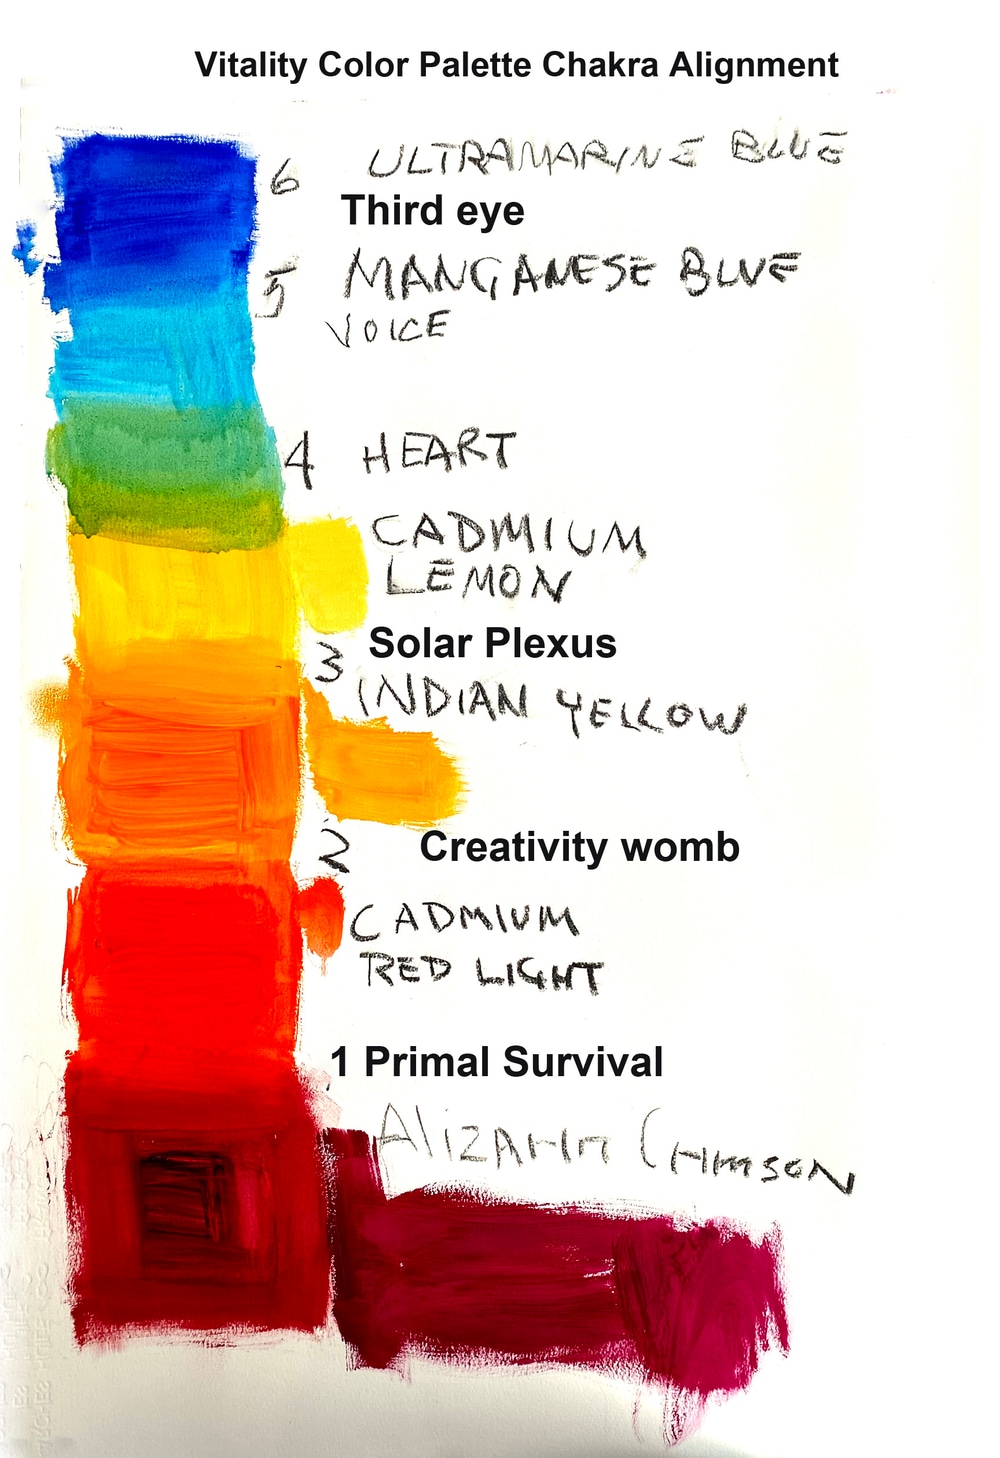 Vitality Color Palette Chakra Alignment
6 ULTRAMARINE BLUE
Third eye
5 MANGANESE BLUE
VOICE
4 HEART
CADMIUM
LEMON
3 Solar Plexus
INDIAN YELLOW
2 Creativity womb
CADMIUM
RED LIGHT
1 Primal Survival
AlizARIn CRImsON